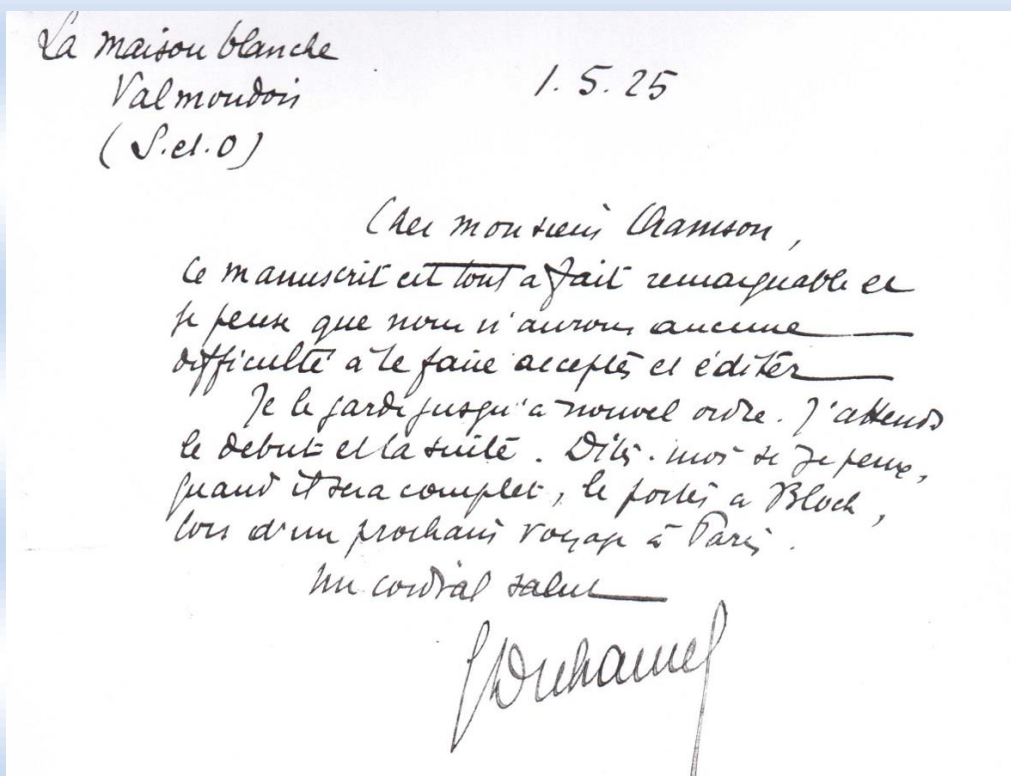 La maison blanche
Valmondois
(S.et.O)
1.5.25
Cher monsieur Chamson,
Ce manuscrit est tout a fait remarquable et
je pense que nous n'aurons aucune
difficulté à le faire accepter et éditer
Je le garde jusqu'à nouvel ordre. J'attends
le debut et la suite. Dites-moi si je peux,
quand il sera complet, le porter a Bloch,
lors d'un prochain voyage à Paris.
Un cordial salut
GDuhamel